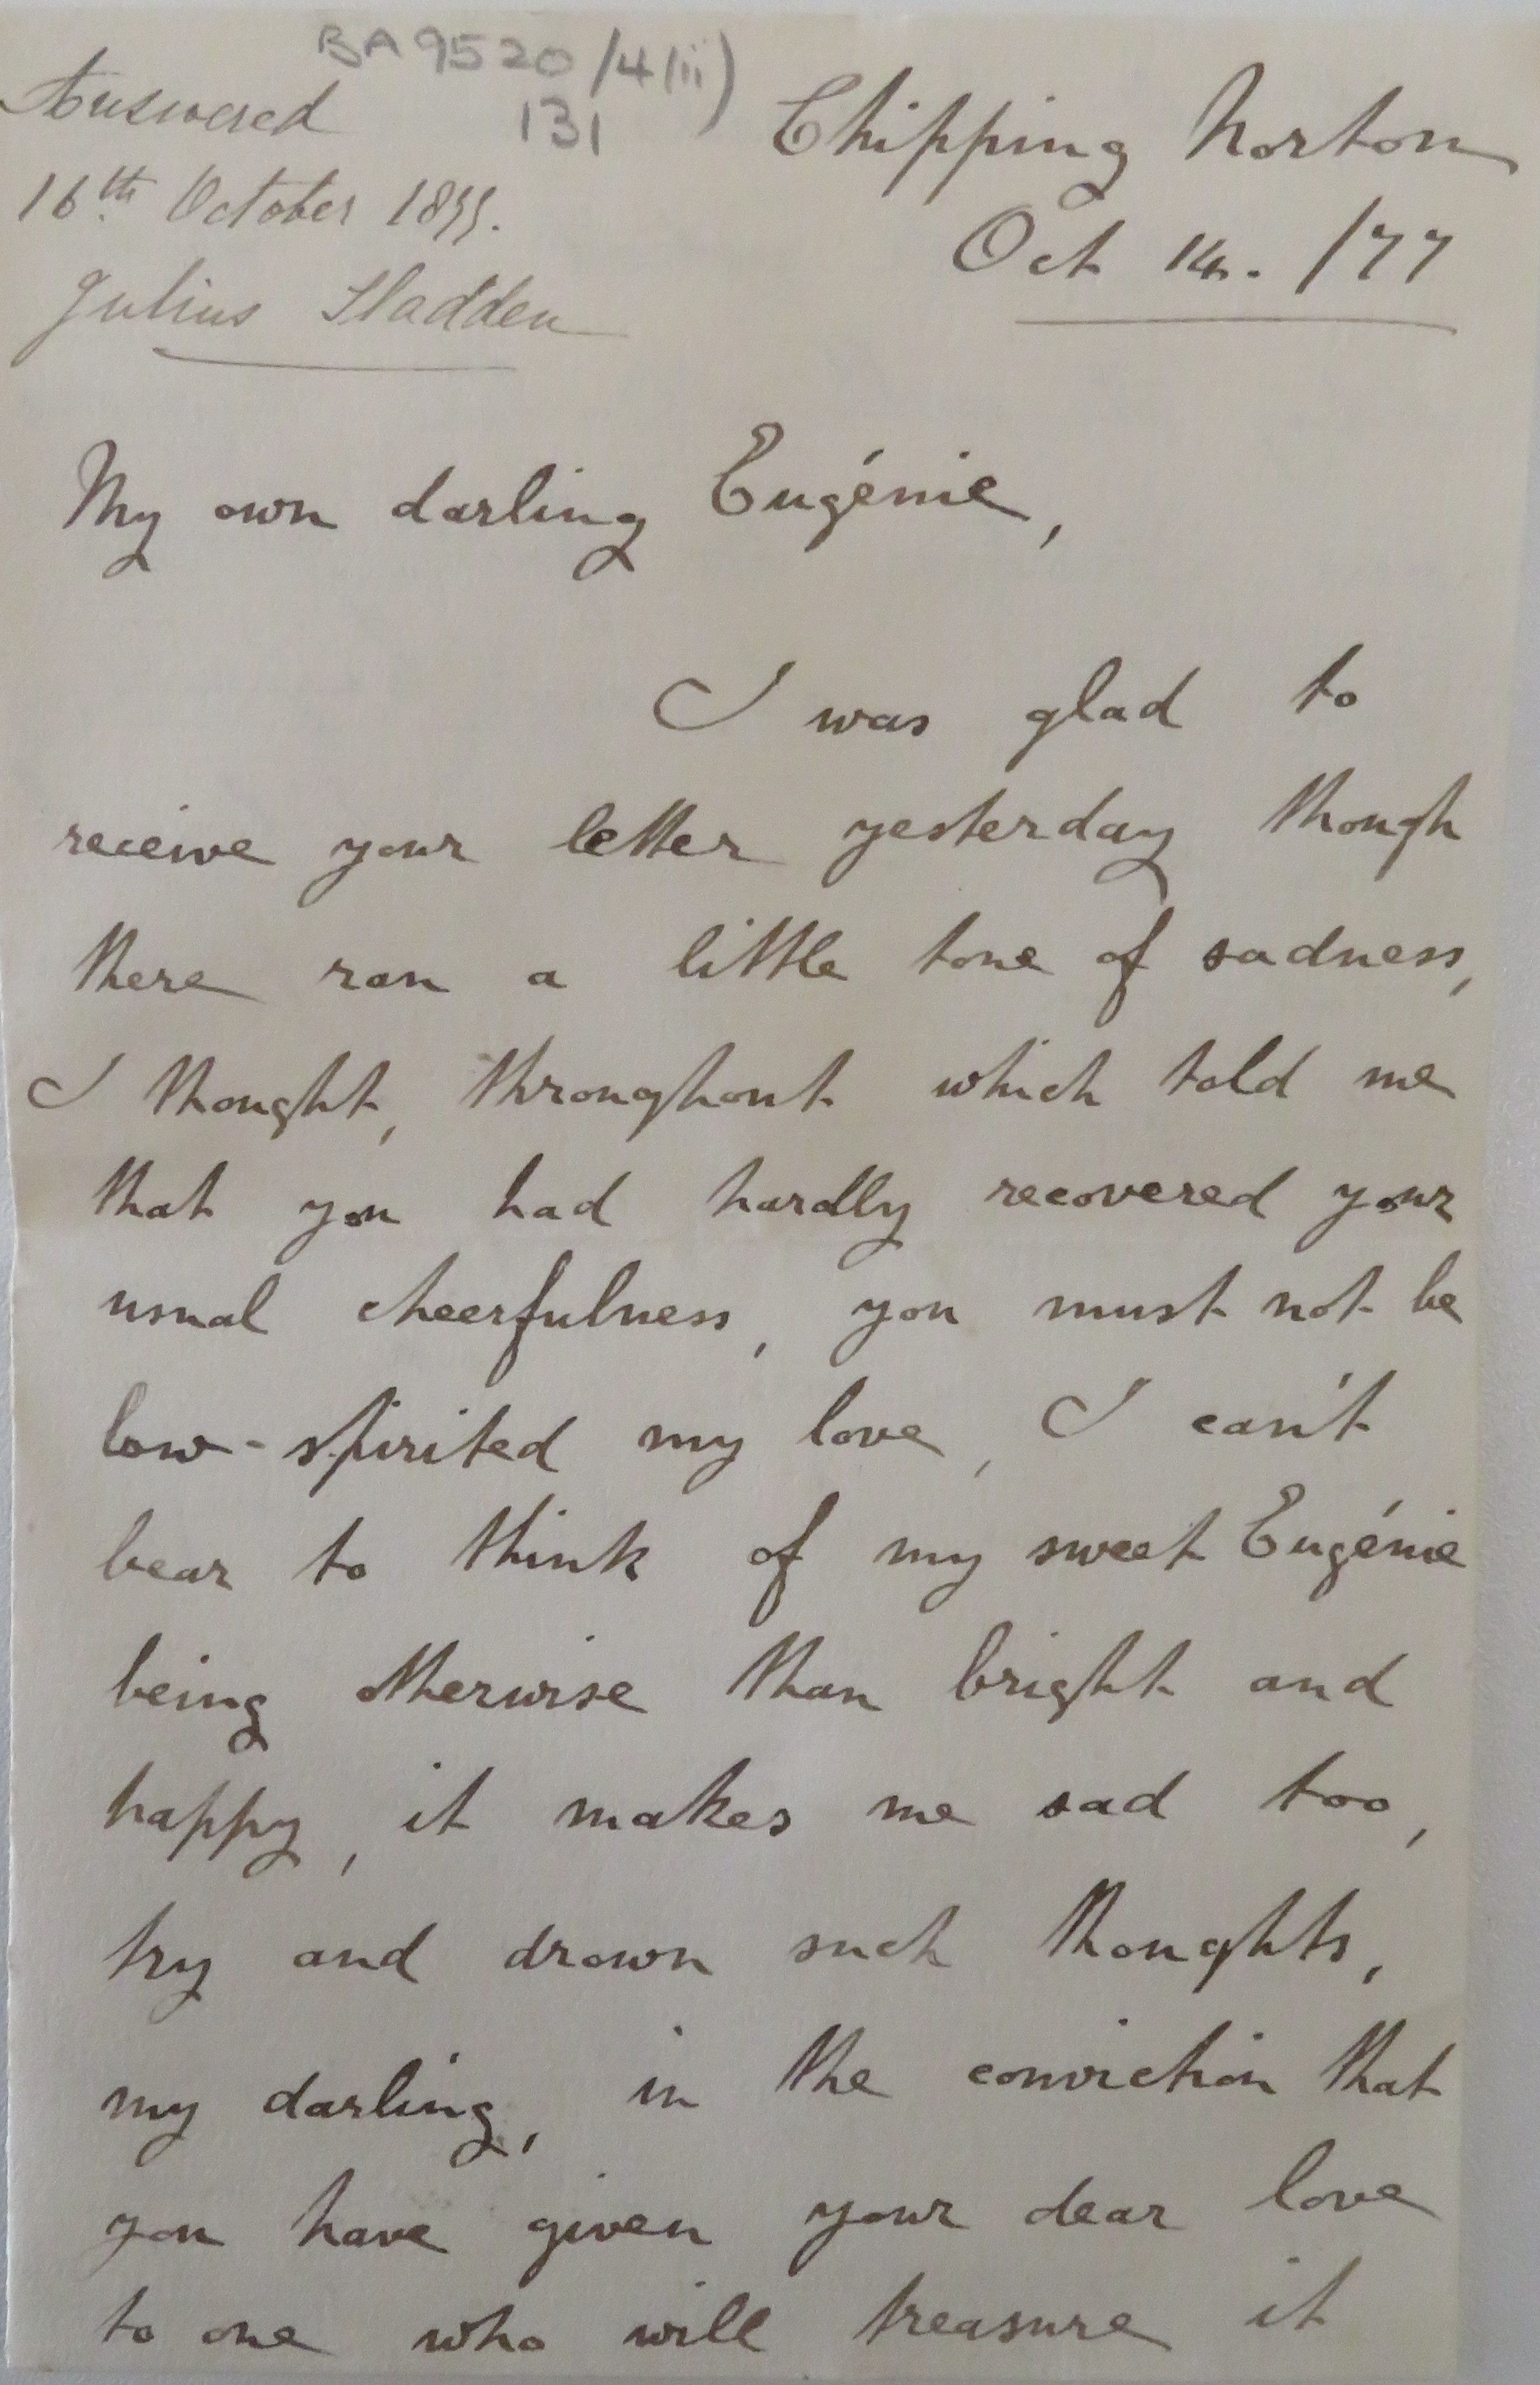 BA 9520/4(ii)
131
Answered
16th October 1877.
Julius Sladden
Chipping Norton
Oct 14. /77
My own darling Eugénie,
I was glad to
receive your letter yesterday though
there ran a little tone of sadness,
I thought, throughout which told me
that you had hardly recovered your
usual cheerfulness, you must not be
low-spirited my love, I can't
bear to think of my sweet Eugénie
being otherwise than bright and
happy, it makes me sad too,
try and drown such thoughts,
my darling, in the conviction that
you have given your dear love
to one who will treasure it